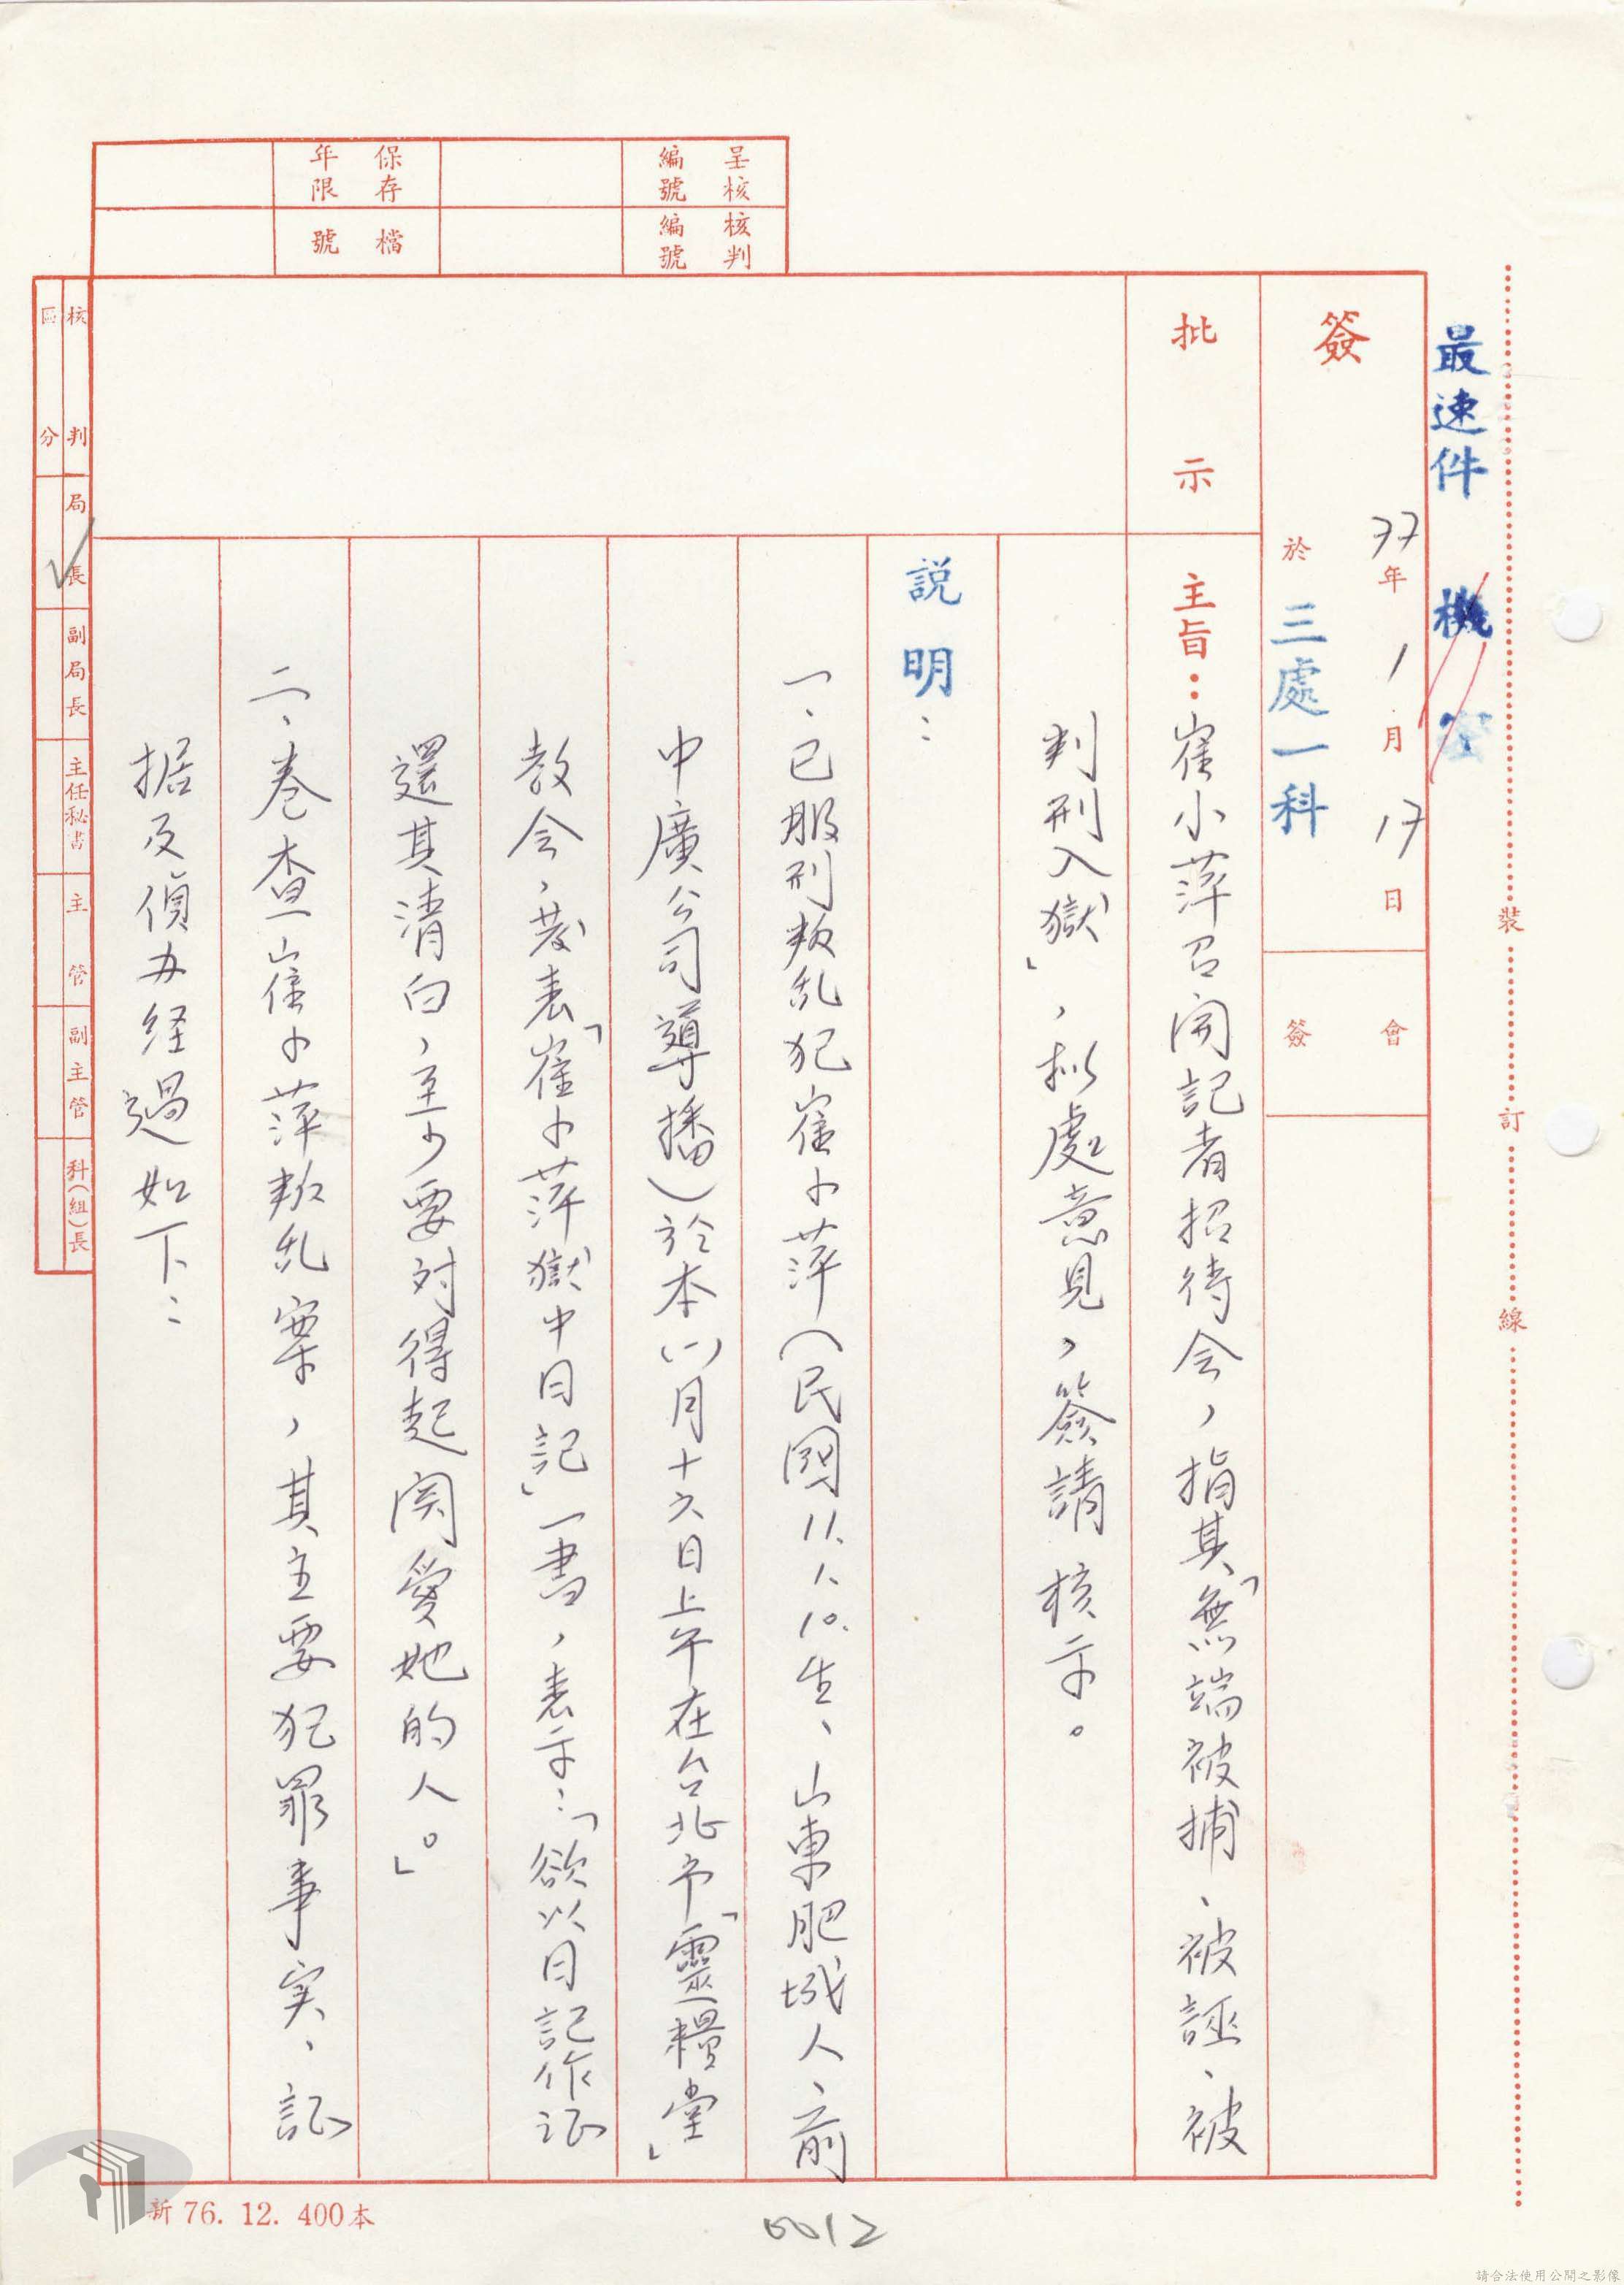 最速件 機密
簽
77年1月17日
於 三處一科
會簽
批示
主旨：崔小萍召開記者招待会，指其「無端被捕、被誣、被
判刑入獄」，拟處意見，簽請 核示。
説明：
一、已服刑叛乱犯崔小萍（民國11.1.10.生、山東肥城人、前
中廣公司導播）於本(一)月十六日上午在台北市「靈糧堂」
教会，發表「崔小萍獄中日記」一書，表示：「欲以日記作证
還其清白，至少要対得起関愛她的人。」
二、卷查崔小萍叛乱案，其主要犯罪事实、証
据及偵办经過如下：
呈核編號
核判編號
保存年限
檔號
核判區分
局長
副局長
主任秘書
主管
副主管
科(組)長
裝訂線
新 76. 12. 400本
0012
請合法使用公開之影像